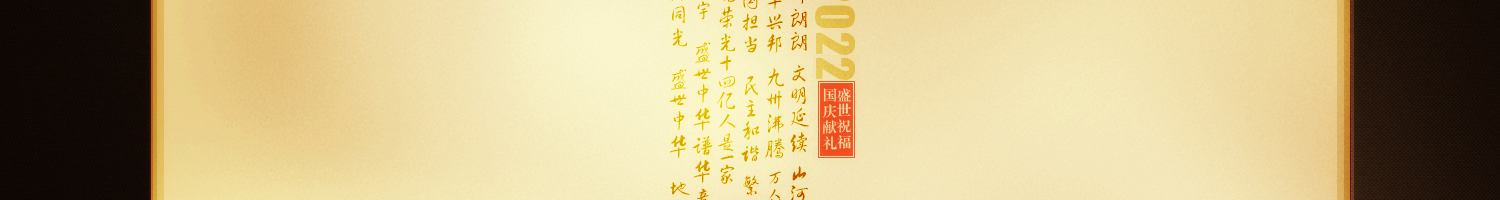 2022
盛世祝福
国庆献礼
朗朗 文明延续 山河
兴邦 九州沸腾 万
担当 民主和谐 繁
荣光十四亿人是一家
宇 盛世中华谱华
同光 盛世中华 地